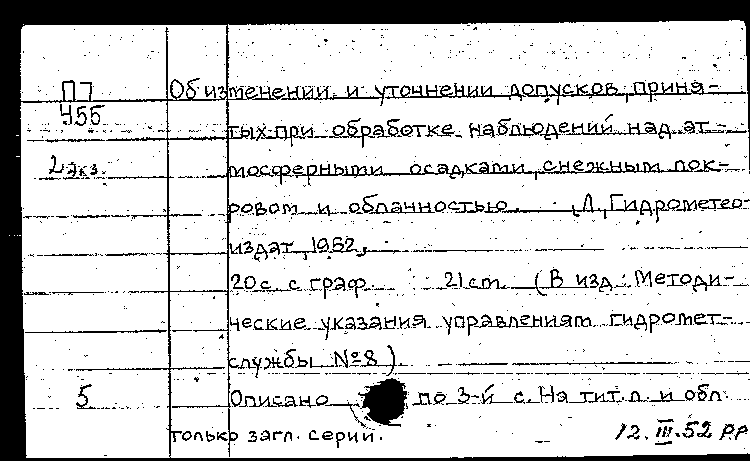 П7 Об изменении и уточнении допусков, приня-
455 тых при обработке наблюдений над ат-
2 экз. мосферными осадками, снежным пок-
ровом и облачностью. Л., Гидрометео-
издат, 1952,
20 с. с граф. 21 cm. (В изд: Методи-
ческие указания управлениям гидромет-
службы № 8)
5 Описано по 3-й с. На тит. л. и обл.
только загл. серии. 12.III.52 рр